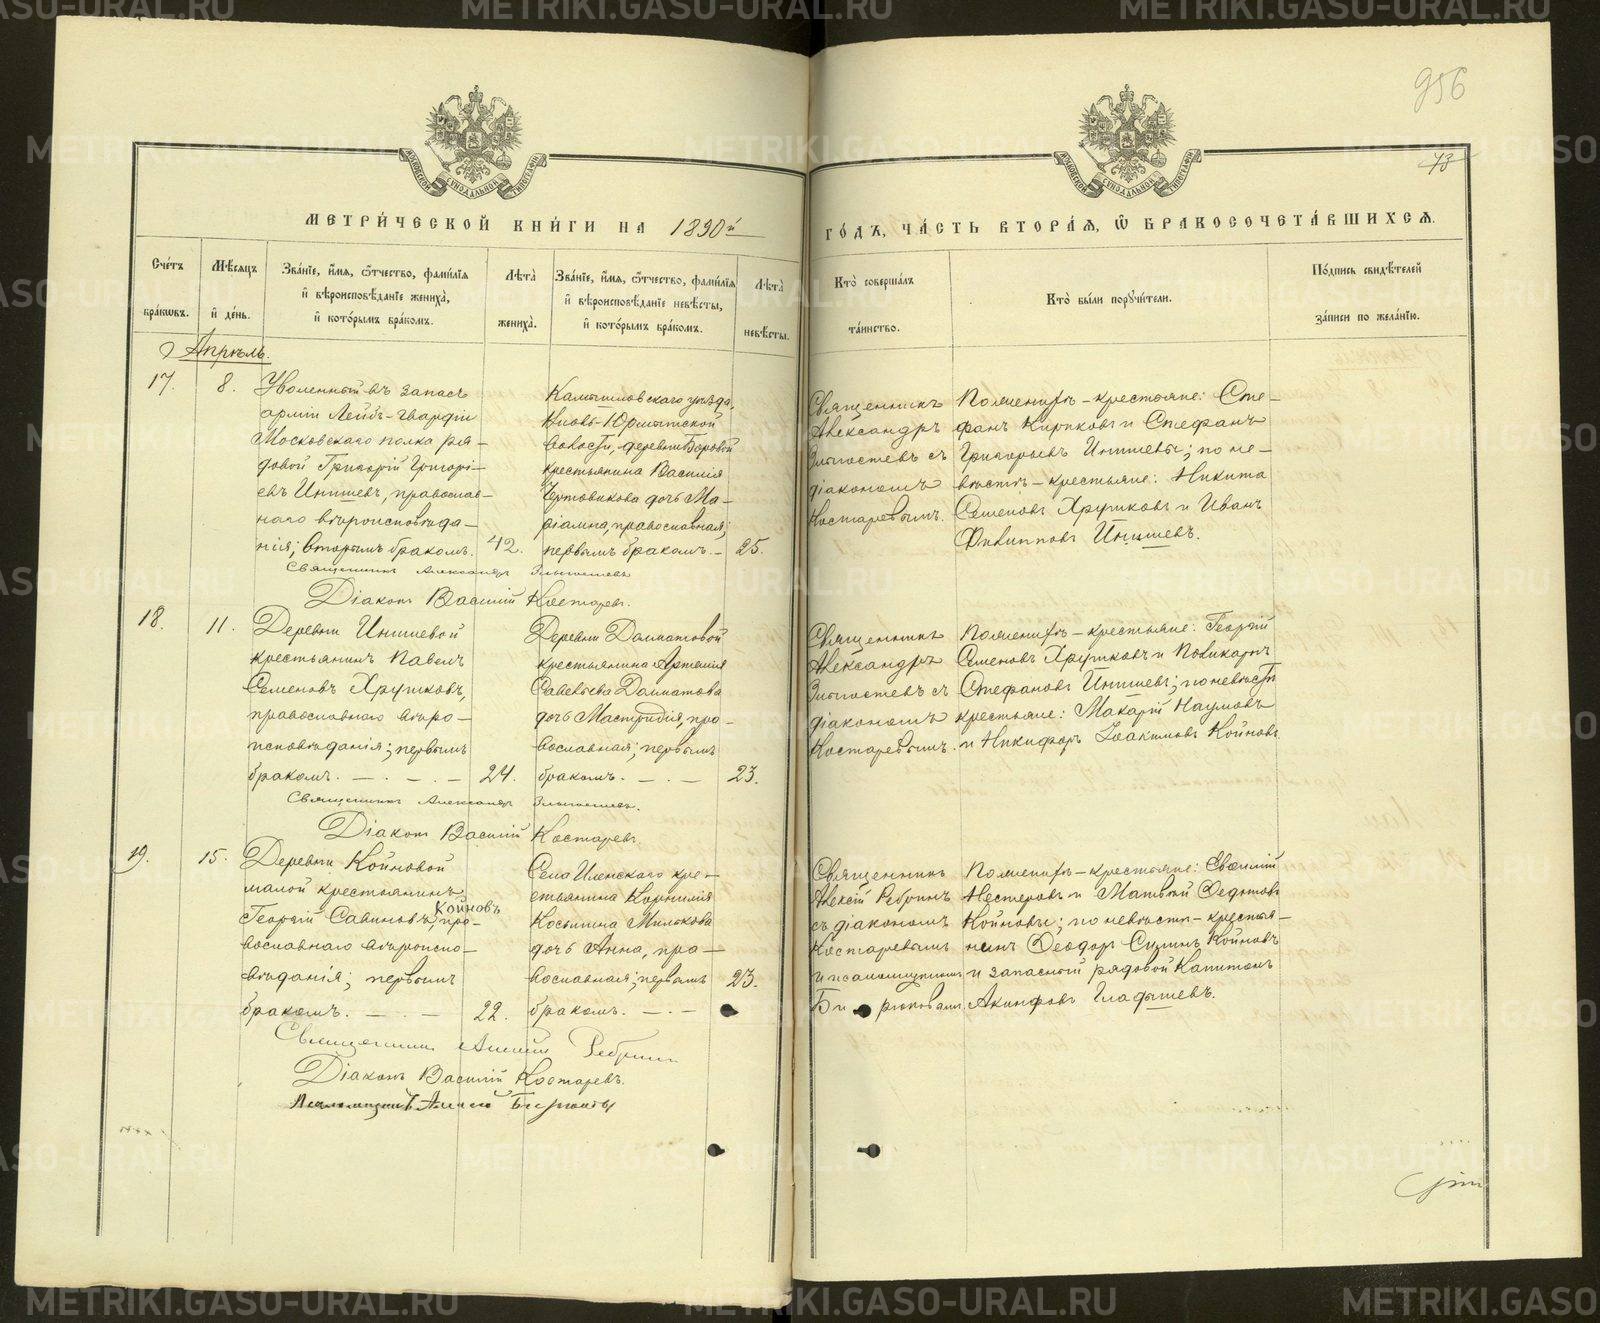 956
73
МЕТРИ́ЧЕСКОЙ КНИ́ГИ НА 1890й ГО́ДЪ, ЧА́СТЬ ВТОРА́Я, Ѿ БРАКОСОЧЕТА́ВШИХСЯ.
Сче́тъ бра́кωвъ.
Мѣ́сяцъ и҆ де́нь.
Зва́нїе, и҆́мя, ѻ҆́тчество, фами́лїя
и҆ вѣроисповѣ́данїе жениха̀,
и҆ кото́рымъ бра́комъ.
Лѣта̀ жениха̀.
Зва́нїе, и҆́мя, ѻ҆́тчество, фами́лїя
и҆ вѣроисповѣ́данїе невѣ́сты,
и҆ кото́рымъ бра́комъ.
Лѣта̀ невѣ́сты.
Кто̀ соверша́лъ
та́инство.
Кто̀ бы́ли порꙋчи́тели.
По́дпись свидѣ́телей
за́писи по жела́нїю.
Апрѣль.
17.
8.
Уволенный въ запасъ
арміи Лейбъ-гвардіи
Московскаго полка ря-
довой Григорій Григорі-
евъ Инишевъ, православ-
наго вѣроисповѣда-
нія; вторымъ бракомъ.
42.
Камышловскаго уѣзда,
Юрмытской
волости, деревни Боровой
крестьянина Василія
дочь Ма-
ріамна, православная;
первымъ бракомъ.-
25.
Священникъ
Александръ
Злыгостевъ съ
діакономъ
Костаревымъ.
По женихѣ - крестьяне: Сте-
фанъ Кириковъ и Стефанъ
Григорьевъ Инишевы; по не-
вѣстѣ - крестьяне: Никита
Семеновъ Хрушковъ и Иванъ
Филипповъ Инишевъ.
Священникъ Александръ Злыгостевъ
Діаконъ Василій Костаревъ.
18.
11.
Деревни Инишевой
крестьянинъ Павелъ
Семеновъ Хрушковъ,
православнаго вѣро-
исповѣданія; первымъ
бракомъ. - . - . -
24.
Деревни Далматовой
крестьянина Артемія
Савельева Далматова
дочь Мастридія, пра-
вославная; первымъ
бракомъ. - . -
23.
Священникъ
Александръ
Злыгостевъ съ
діакономъ
Костаревымъ.
По женихѣ - крестьяне: Георгій
Семеновъ Хрушковъ и Поликарпъ
Стефановъ Инишевъ; по невѣстѣ
крестьяне: Макарій Наумовъ
и Никифоръ Іоакимовъ Койновъ
Священникъ Александръ Злыгостевъ.
Діаконъ Василій Костаревъ
19.
15.
Деревни Койновой
малой крестьянинъ
Георгій Савиновъ Койновъ, пра-
вославнаго вѣроиспо-
вѣданія; первымъ
бракомъ. - . -
22.
Села Иленскаго кре-
стьянина Корнилія
Козьмина Милькова
дочь Анна, пра-
вославная; первымъ
бракомъ. - . -
23.
Священникъ
Алексій Ребринъ
съ діакономъ
Костаревымъ
и псаломщикомъ
Бирюковымъ.
По женихѣ - крестьяне:
Нестеровъ и Матвей Федотовъ
Койновы; по невѣстѣ - крестья-
нинъ Феодоръ Силинъ Койновъ
и запасный рядовой Капитонъ
Акинфовъ Гладышевъ.
Священникъ Алексій Ребринъ
Діаконъ Василій Костаревъ.
Псаломщикъ Алексій Бирюковъ
METRIKI.GASO-URAL.RU